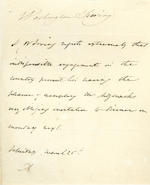 Washington Irving
W Irving regrets extremely that
indispensable engagements in the
country prevent his having the
pleasure of accepting Mr
invitation to dinner on
monday next.
Saturday March 25th